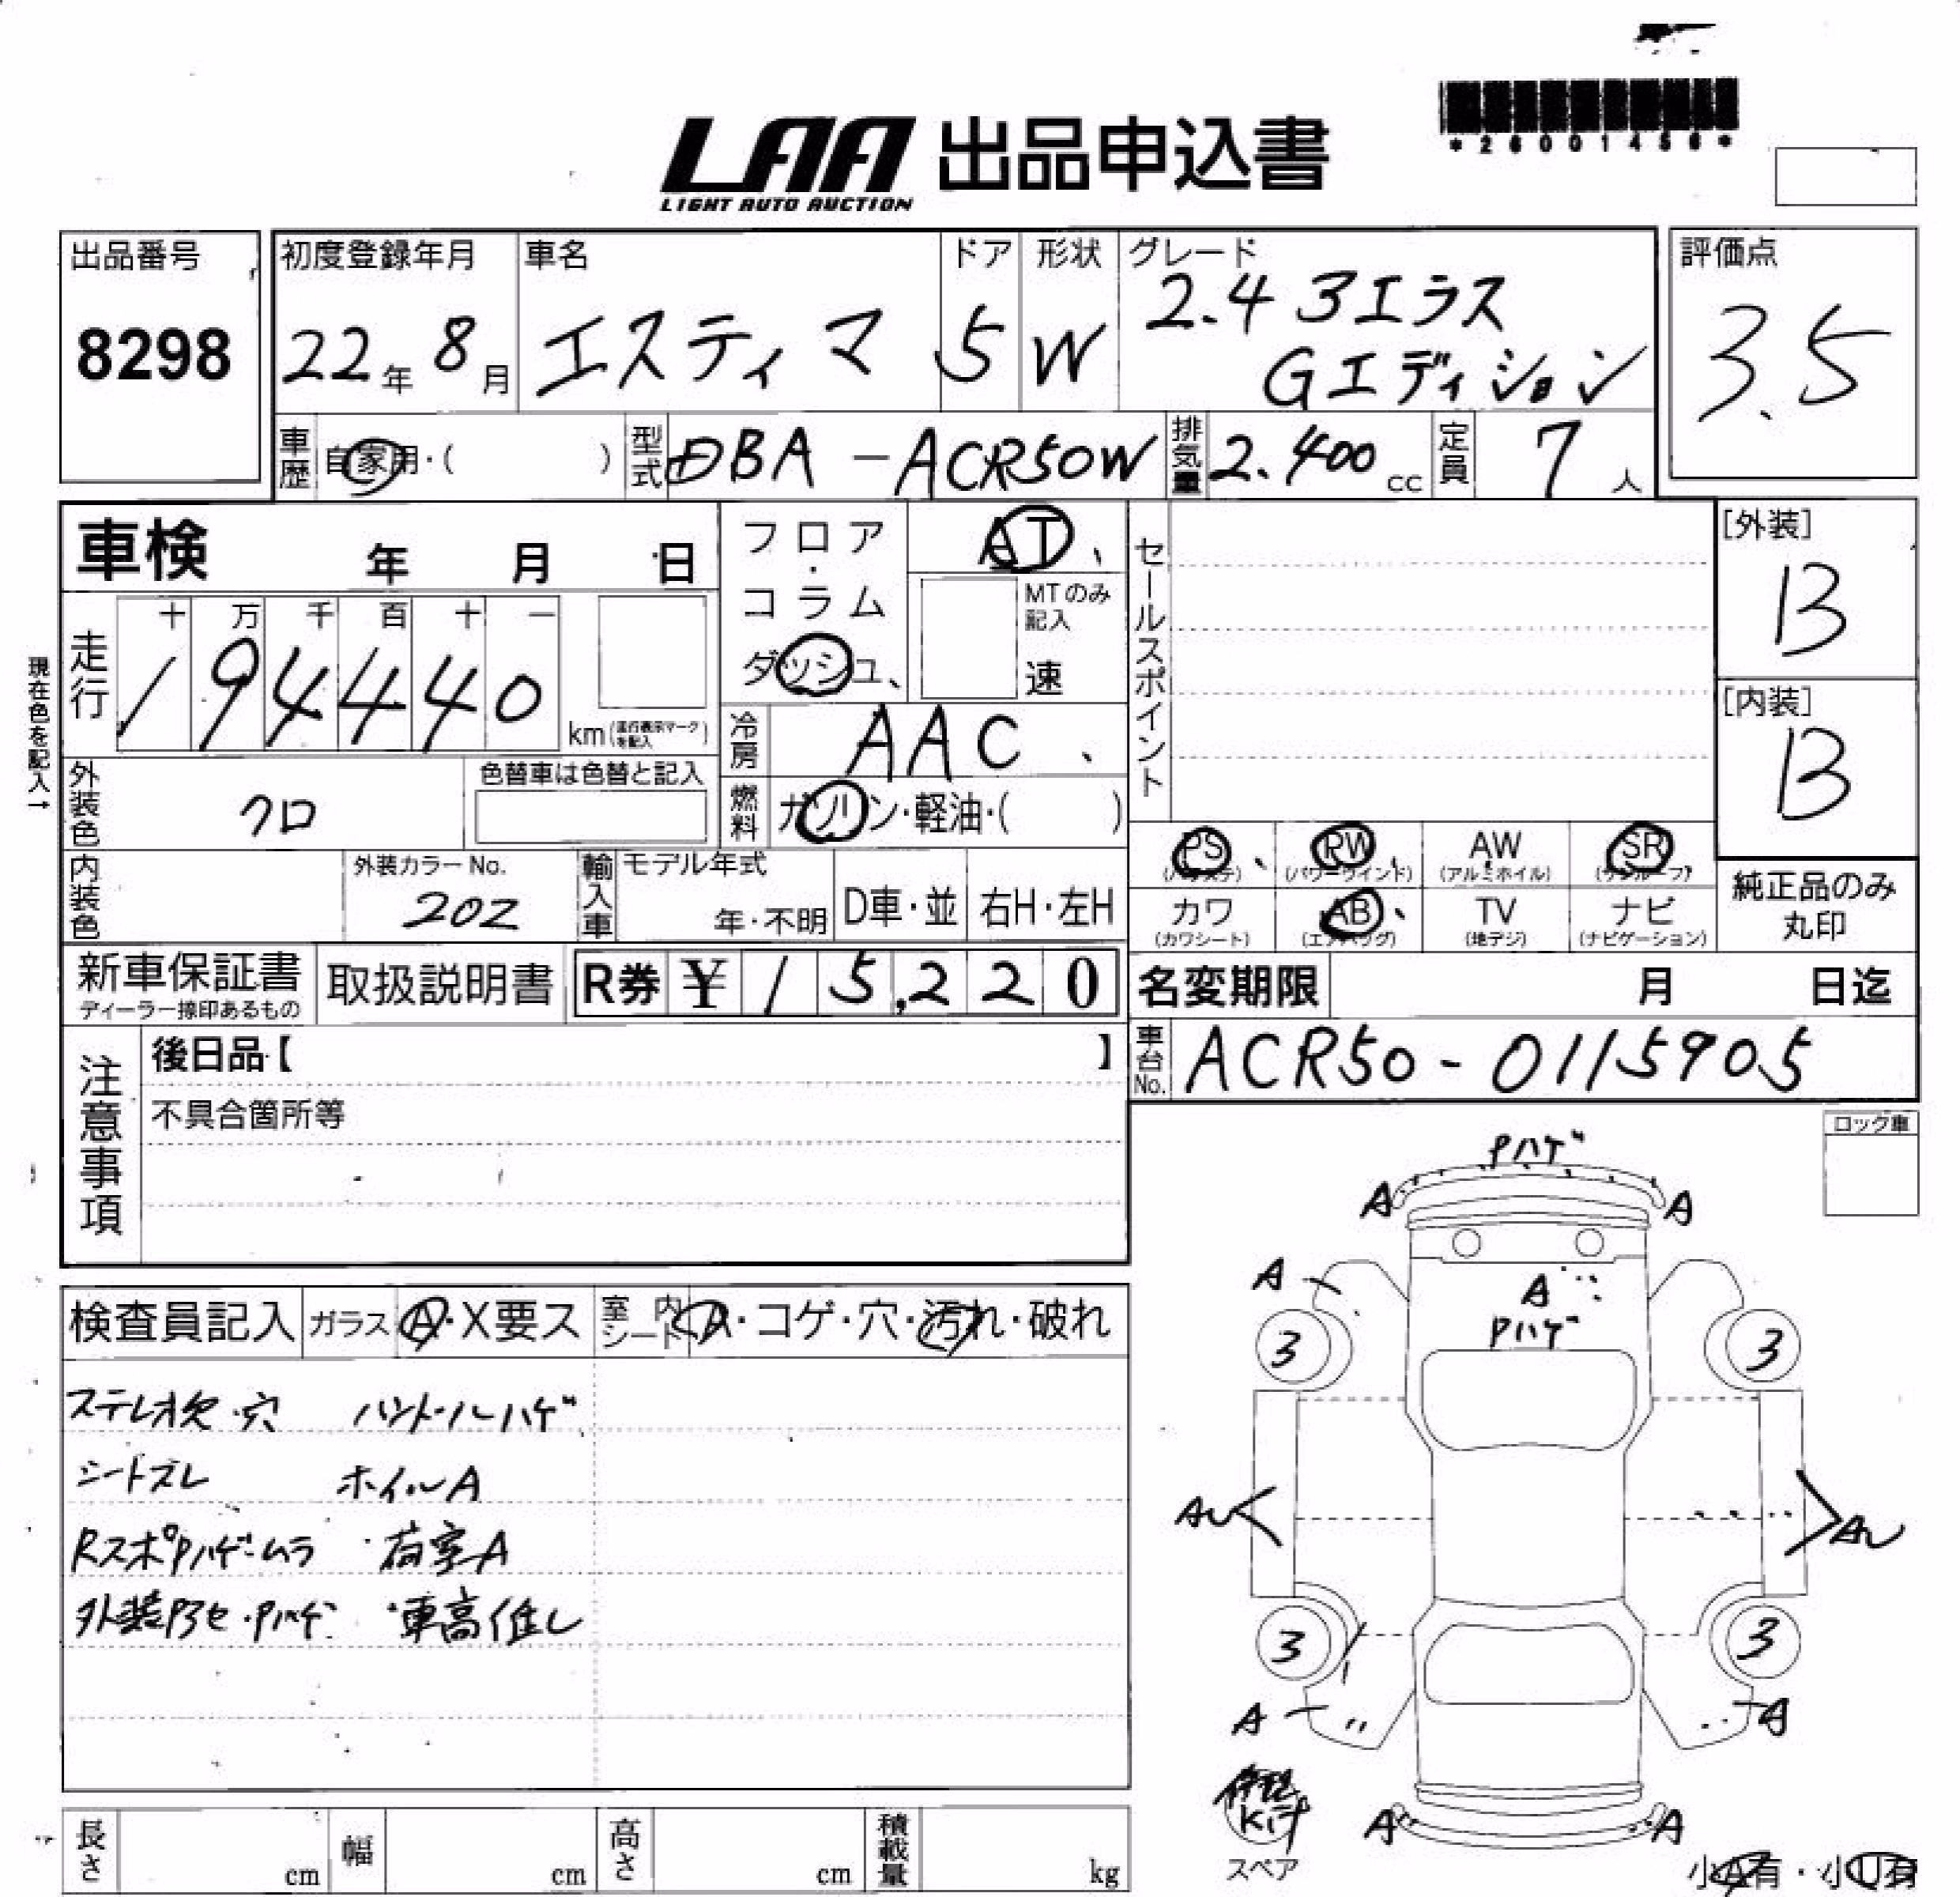 *26001456*
LAA 出品申込書
LIGHT AUTO AUCTION
出品番号
8298
初度登録年月
22年 8月
車名
エスティマ
ドア
5
形状
W
グレード
2.4 3エラス
Gエディション
評価点
3.5
車歴 自家用・( )
型式 DBA-ACR50W
排気量 2.400 cc
定員 7人
車検 年 月 日
フロア・コラム
ダッシュ、
AT、
MTのみ記入
速
セールスポイント
[外装]
B
[内装]
B
現在色を記入→
走行
十 万 千 百 十 一
1 9 4 4 4 0
km(走行表示マークを記入)
冷房 AAC、
外装色 クロ
色替車は色替と記入
燃料 ガソリン・軽油・( )
PS、 (パワステ)
PW、 (パワーウインド)
AW (アルミホイル)
SR (サンルーフ)
内装色
外装カラーNo.
202
輸入車
モデル年式
年・不明
D車・並
右H・左H
カワ (カワシート)
AB、 (エアバッグ)
TV (地デジ)
ナビ (ナビゲーション)
純正品のみ
丸印
新車保証書
ディーラー捺印あるもの
取扱説明書
R券 ¥ 1 5,2 2 0
名変期限 月 日迄
車台No. ACR50-0115905
注意事項
後日品【 】
不具合箇所等
ロック車
Pハゲ
A A
A
A
Pハゲ
3 3
検査員記入 ガラス A・X要ス 室内シート A・コゲ・穴・汚れ・破れ
ステレオ欠・穴 ハンドルハゲ
シートズレ ホイルA
RスポPハゲ・ムラ 荷室A
外装Pアセ・Pハゲ 車高低し
AU AU
3 3
A A
修理
Kit
スペア
A A
小A有・小U有
長さ cm
幅 cm
高さ cm
積載量 kg